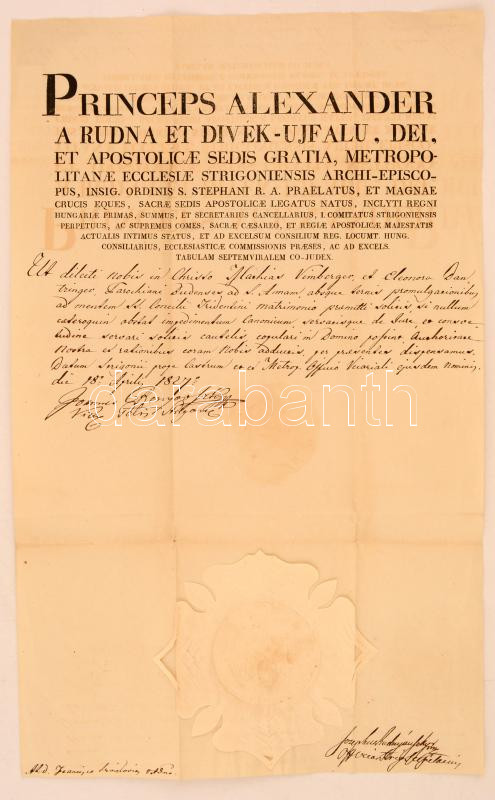 PRINCEPS ALEXANDER
A RUDNA ET DIVÉK-UJFALU, DEI,
ET APOSTOLICÆ SEDIS GRATIA, METROPO-
LITANÆ ECCLESIÆ STRIGONIENSIS ARCHI-EPISCO-
PUS, INSIG. ORDINIS S. STEPHANI R. A. PRAELATUS, ET MAGNAE
CRUCIS EQUES, SACRÆ SEDIS APOSTOLICÆ LEGATUS NATUS, INCLYTI REGNI
HUNGARIÆ PRIMAS, SUMMUS, ET SECRETARIUS CANCELLARIUS, I. COMITATUS STRIGONIENSIS
PERPETUUS, AC SUPREMUS COMES, SACRÆ CÆSAREO, ET REGIÆ APOSTOLICÆ MAJESTATIS
ACTUALIS INTIMUS STATUS, ET AD EXCELSUM CONSILIUM REG. LOCUMT. HUNG.
CONSILIARIUS, ECCLESIASTICÆ COMMISSIONIS PRÆSES, AC AD EXCELS.
TABULAM SEPTEMVIRALEM CO-JUDEX.
Ut dilecti nobis in Christo Mathias Et Eleonora
Parochiani Budenses ad S. Annam absque ternis promulgationibus
ad mentem SS. Concilii Tridentini matrimonio praemitti solitis si nullum
cateroquin obstat impedimentum Canonicum servatisque de Jure, et consve-
tudine servari solitis cautelis copulari in Domino possint, Authoritate
Nostra ex rationibus coram Nobis adductis, per praesentes dispensamus.
Datum Strigonii ex Metrop. Officio Vicariali ejusdem Nominis,
die 18a Aprilis 1827o
darabanth